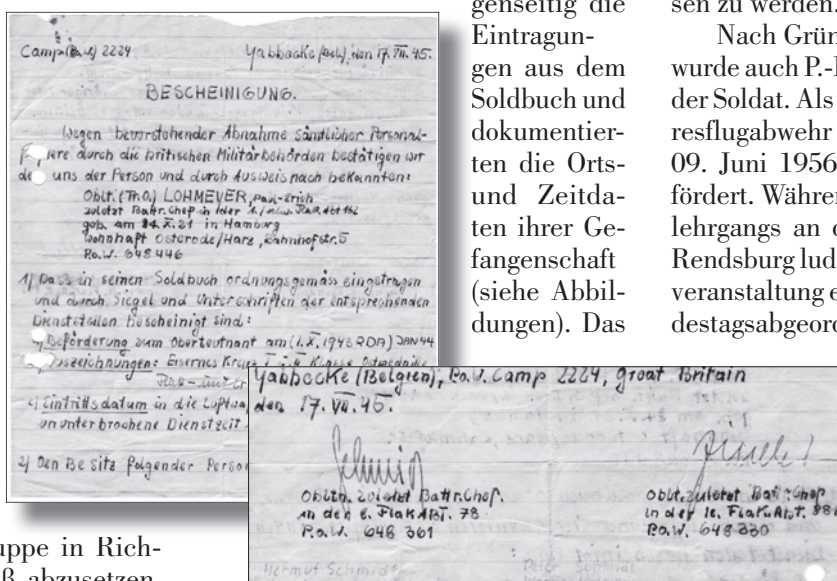 Camp (P.W.) 2224 Yabbocke (Belg), den 17. VII. 45.
BESCHEINIGUNG.
Wegen bevorstehender Abnahme sämtlicher Personal-
iere durch die britischen Militärbehörden bestätigen wir
de uns der Person und durch Ausweis nach bekannten:
Oblt. (Tr.O.) LOHMEYER, Paul-Erich
zuletzt Battr. Chef in der 1./
geb. am 24. X. 21 in Hamburg
wohnhaft Osterode/Harz, Bahnhofstr. 5
P.o.W. 648 446
1) Dass in seinen Soldbuch ordnungsgemäss eingetragen
und durch Siegel und Unterschriften der entsprechenden
Dienststellen bescheinigt sind:
Beförderung zum Oberleutnant am (1. X. 1943 RDA) JAN 44
Auszeichnungen: Eisernes Kreuz I. u. II. Klasse
c) Eintrittsdatum in die Luftwa
ununterbrochene Dienstzeit
2) Den Besitz folgender Person
Yabbocke (Belgien), P.o.W. Camp 2224, Great Britain
den 17. VII. 45.
Schmidt
Obltn. zuletzt Battr. Chef. Oblt. zuletzt Batt. Chef
in der 6. Flak Abt. 78 in der le. Flak. Abt.
P.o.W. 648 361 P.o.W. 648 330
Helmut Schmidt
genseitig die
Eintragun-
gen aus dem
Soldbuch und
dokumentier-
ten die Orts-
und Zeitda-
ten ihrer Ge-
fangenschaft
(siehe Abbil-
dungen). Das
sen zu werden.
Nach Grün
wurde auch P.-
der Soldat. Als
resflugabwehr
09. Juni 1956
fördert. Währen
lehrgangs an d
Rendsburg lud
veranstaltung e
destagsabgeord
uppe in Rich-
ß abzusetzen